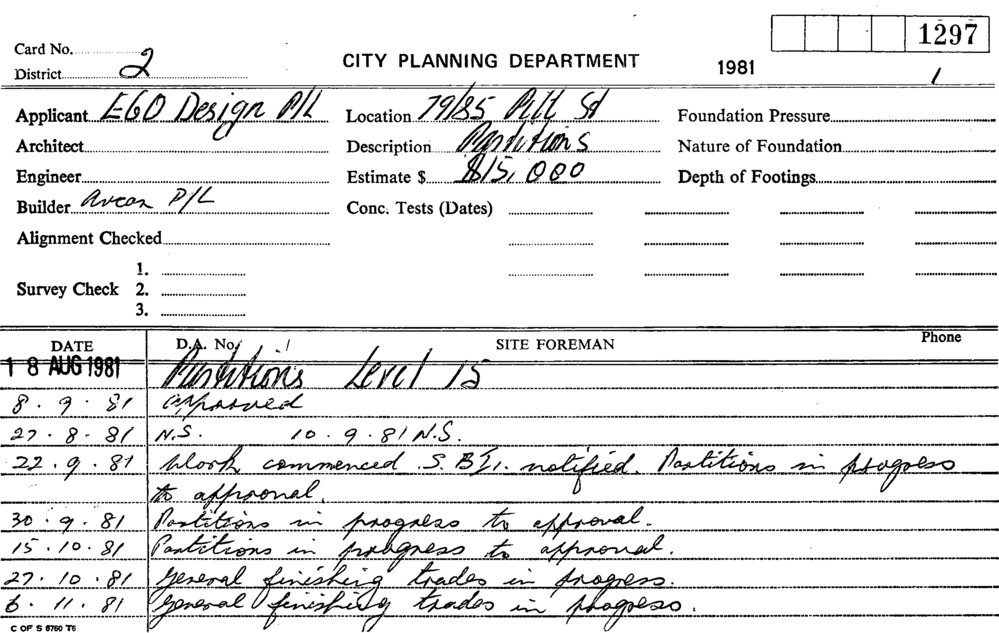 1297
Card No.
District 2
CITY PLANNING DEPARTMENT
1981
1
Applicant EGO Design P/L
Location 79/85 Pitt St
Foundation Pressure
Architect
Description Partitions
Nature of Foundation
Engineer
Estimate $ $15,000
Depth of Footings
Builder Avcon P/L
Conc. Tests (Dates)
Alignment Checked
Survey Check
1.
2.
3.
DATE
D.A. No.
SITE FOREMAN
Phone
18 AUG 1981 Partitions Level 15
8 . 9 . 81 approved
27 . 8 . 81 N.S. 10 . 9 . 81 N.S.
22 . 9 . 81 Work commenced S. B. I. notified. Partitions in progress
to approval.
30 . 9 . 81 Partitions in progress to approval.
15 . 10 . 81 Partitions in progress to approval.
27 . 10 . 81 General finishing trades in progress.
6 . 11 . 81 General finishing trades in progress.
C OF S 6760 T6